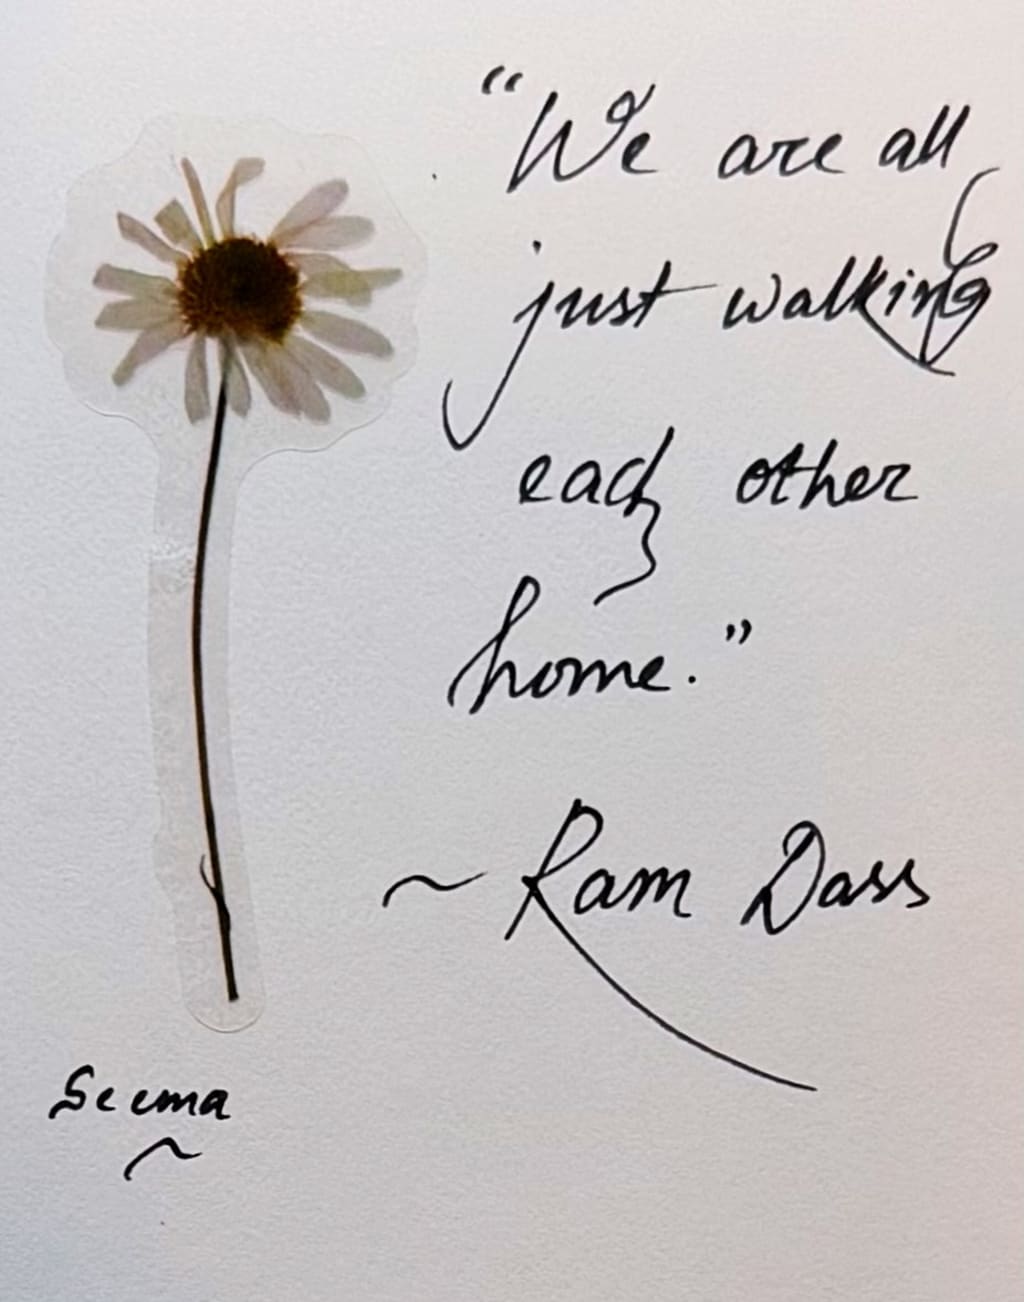 “We are all
just walking
each other
home.”
~ Ram Dass
Seema
~